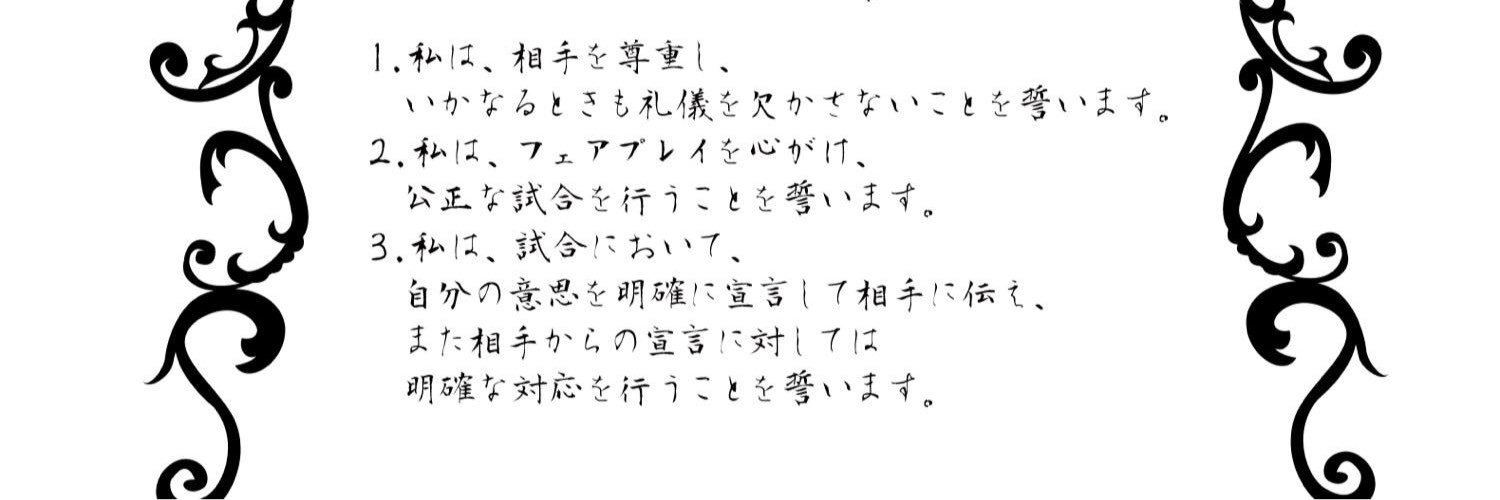 1.私は、相手を尊重し、
いかなるときも礼儀を欠かさないことを誓います。
2.私は、フェアプレイを心がけ、
公正な試合を行うことを誓います。
3.私は、試合において、
自分の意思を明確に宣言して相手に伝え、
また相手からの宣言に対しては
明確な対応を行うことを誓います。